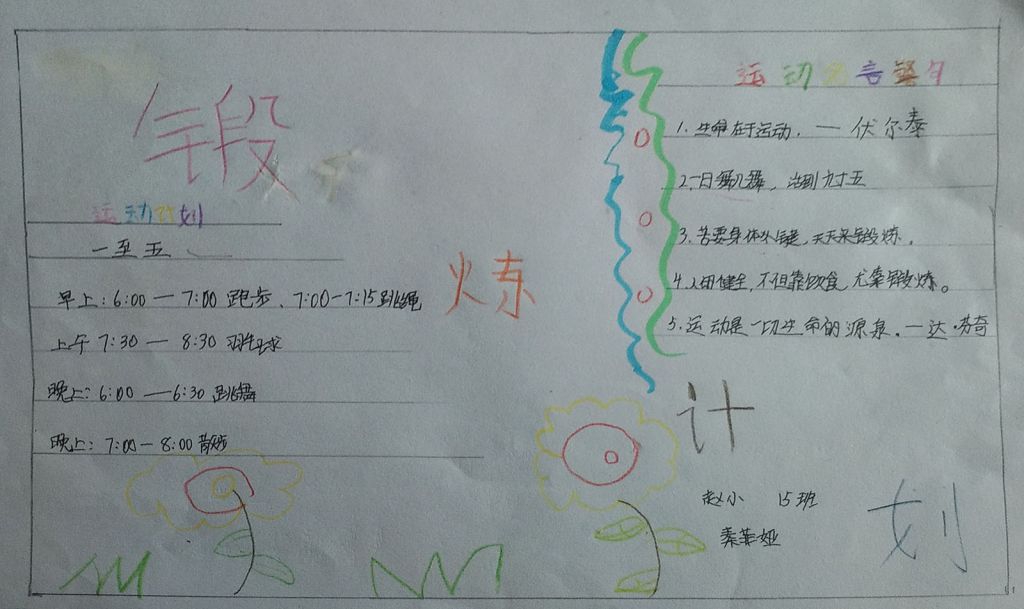 锻
炼
计
划
运动计划
一至五
早上:6:00—7:00 跑步、7:00-7:15跳绳
上午 7:30—8:30 羽毛球
晚上:6:00——6:30 跳舞
晚上:7:00—8:00 散步
运动名言警句
1. 生命在于运动. — 伏尔泰
2. 一日舞几舞,活到九十五
3. 若要身体健,天天来锻炼。
4. 人田健生,不但靠饮食,尤靠锻炼。
5. 运动是一切生命的源泉. —达·芬奇
赵小 15班